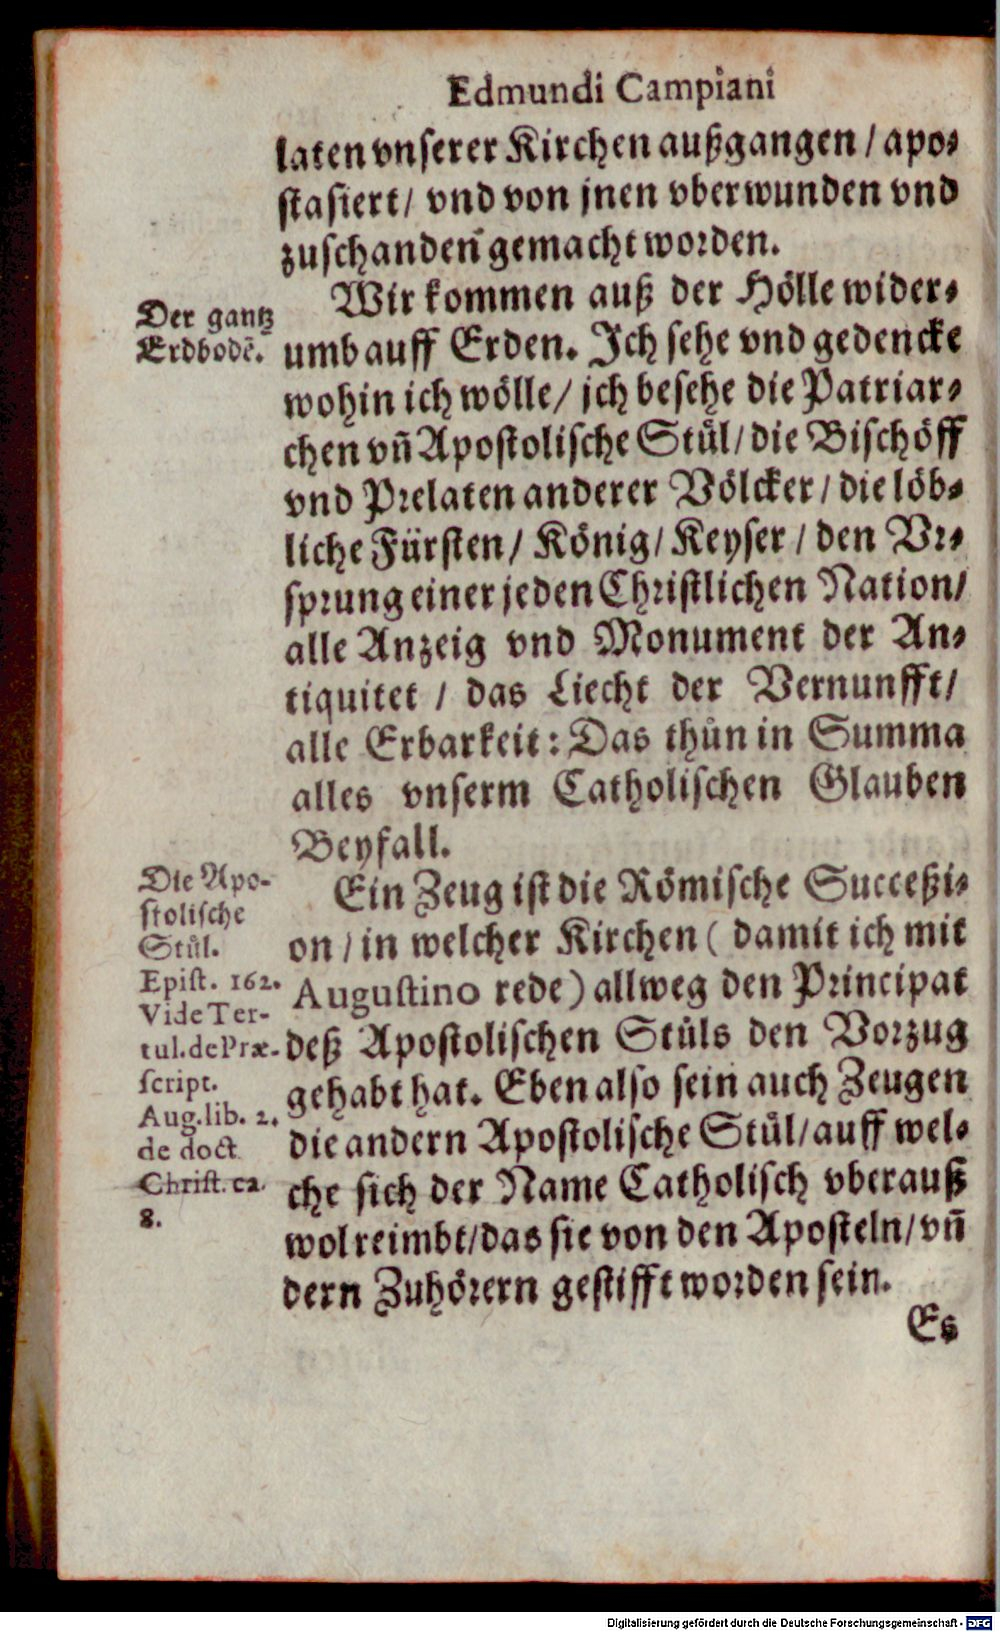 Edmundi Campiani
laten vnserer Kirchen außgangen / apo-
stasiert / vnd von jnen vberwunden vnd
zuschanden gemacht worden.
Der gantz
Erdbodē.
Wir kommen auß der Hölle wider-
umb auff Erden. Ich sehe vnd gedencke
wohin ich wölle / ich besehe die Patriar-
chen vñ Apostolische Stůl / die Bischöff
vnd Prelaten anderer Völcker / die löb-
liche Fürsten / König / Keyser / den Vr-
sprung einer jeden Christlichen Nation /
alle Anzeig vnd Monument der An-
tiquitet / das Liecht der Vernunfft /
alle Erbarkeit : Das thůn in Summa
alles vnserm Catholischen Glauben
Beyfall.
Die Apo-
stolische
Stůl.
Epist. 162.
Vide Ter-
tul. de Præ-
script.
Aug. lib. 2.
de doct
Christ. ca.
8.
Ein Zeug ist die Römische Succeßi-
on / in welcher Kirchen ( damit ich mit
Augustino rede ) allweg den Principat
deß Apostolischen Stůls den Vorzug
gehabt hat. Eben also sein auch Zeugen
die andern Apostolische Stůl / auff wel-
che sich der Name Catholisch vberauß
wol reimbt / das sie von den Aposteln / vñ
dern Zuhörern gestifft worden sein.
Es
Digitalisierung gefördert durch die Deutsche Forschungsgemeinschaft - DFG